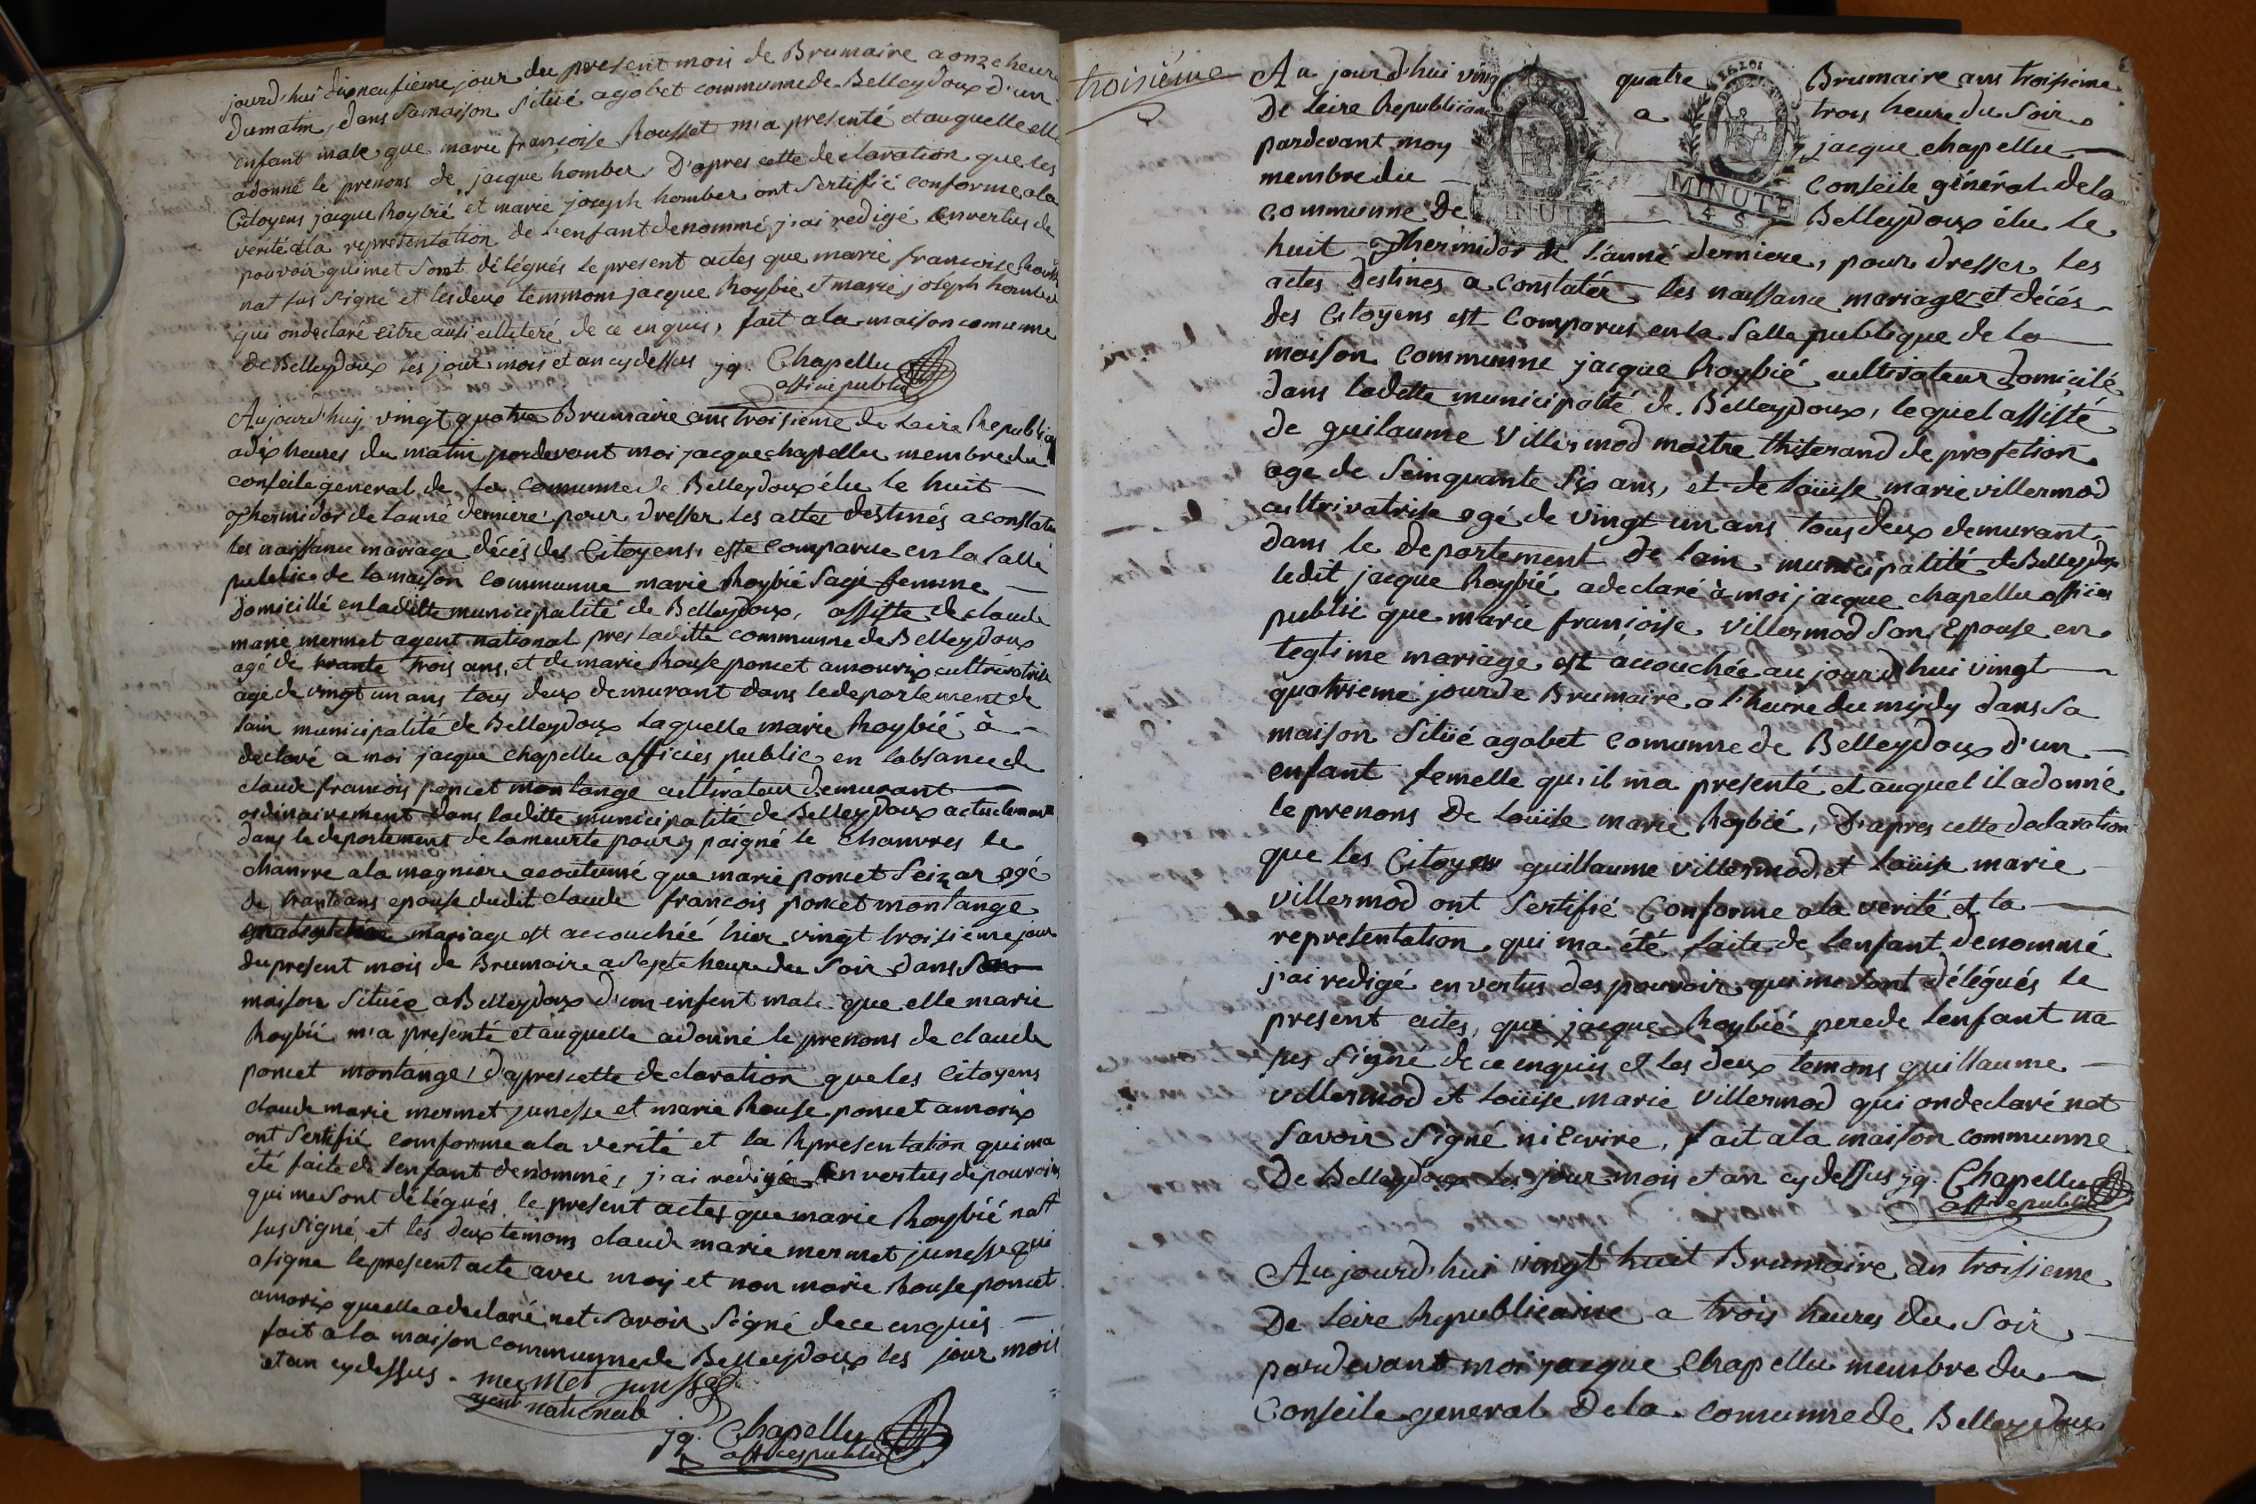 jourd'hui dixneufieme jour du present mois de Brumaire a onze heure
du matin, dans sa maison situé agobet communne de Belleydoux d'un
enfant male que marie françoise Rousset m'a presenté et auquelle elle
a donné le prenons de jacque homber, D'apres cette declaration que les
Citoyens jacque Roybié et marie joseph homber ont sertifié conforme a la
verité a la representation de l'enfant denommé j'ai redigé en vertus de
pouvoir qui met sont délégués le present actes que marie francoise
nat sus signe et les deux temmoms jacque Roybié et marie joseph homber
qui on declaré être ausi de ce enquis, fait a la maison comunne
de Belleydoux les jour mois et an cydessus jq. Chapellu
offisié public
Aujourd'huy vingt quatre Brumaire ans troisieme de leire Republiq
a dix heures du matin pardevant moi jacque chapellu membre du
conseile general de la communne de Belleydoux élu le huit
thermidor de lanné derniere pour dresser les attes destinés a constater
les naissance mariage décés des Citoyens, este comparue en la salle
public de la maison communne marie Roybié sage femme
domicillé en laditte municipalité de Belleydoux, assiste de claude
marie mermet agent national pres laditte communne de Belleydoux
agé de trante trois ans, et de marie Rouse poncet amourix cultivatrise
agé de vingt un ans tous deux demurant dans le departement de
lain municipalité de Belleydoux laquelle marie Roybié à
declaré a moi jacque chapellu officier public en labsance de
claude francois poncet montange cultivateur demurant
ordinairement dans laditte municipalité de Belleydoux actuelement
dans le departement de lameurte pour y paigné le chanvres le
chanvre a la magniere acoutumé que marie poncet Seizar agé
de trante ans epouse dudit claude francois poncet montange
mariage est accouchéé hier vingt troisieme jour
du present mois de Brumaire a septe heure du soir dans
maison située a Belleydoux d'un enfent male que elle marie
Roybié m'a presenté et auquelle a donné le prenons de claude
poncet montange, d'apres cette declaration que les Citoyens
claude marie mermet junesse et marie Rouse poncet amorix
ont sertifié comforme a la verité et la Representation qui ma
été faite de lenfant denommés, j'ai redigé en vertus de pouvoirs
qui me sont délégués le present actes que marie Roybié nat
sus signé, et les deux temoins claude marie mermet junesse qui
a signe le present acte avec moy et non marie Rouse poncet
amorix quelle a declaré net savoir signé de ce enquis
fait a la maison communne de Belleydoux les jour mois
et an cydessus. mermet junesse
agent nationale
jq. Chapellu
officiespublic
troisiéme
Au jourd'hui vingt quatre Brumaire ans troisieme
De leire Republicaine a trois heure du soir
pardevant moy jacque chapellu
membre du conseile général de la
communne De Belleydoux élu le
huit thermidor de l'anné derniere, pour dresser les
actes Destinés a constatér les naissance mariage et décés
des Citoyens est comparus en la salle publique de la
maison communne jacque Roybié cultivateur domicilé
dans laditte municipalité de Belleydoux, lequel assisté
de guilaume Villermod maitre thiserand de profetion
age de seinquante six ans, et de loüise marie villermod
cultrivatrise agé de vingt un ans tous deux demurant
dans le departement De lain municipalité de Belleydoux
ledit jacque Roybié a declaré à moi jacque chapellu officier
public que marie françoise villermod son Epouse en
legtime mariage est acouchée aujourd'hui vingt
quatrieme jour de Brumaire a l'heure du mydy dans sa
maison situé agobet comunne de Belleydoux d'un
enfant femelle qu'il m'a presenté et auquel il a donné
le prenons De loüise marie Roybié, D'apres cette declaration
que les Citoyens guillaume villermod et loüise marie
villermod ont sertifié conforme a la verité et la
representation qui ma été faite de lenfant denommé
j'ai redigé en vertus des pouvoir qui me sont délégués le
present actes, que jacque Roybié pere de lenfant na
pas signé de ce enquis et les deux temons guillaume
villermod et loüise marie villermod qui on declaré net
savoir signé ni Ecrire, fait a la maison communne
De Belleydoux les jour mois et an cydessus jq. Chapellu
offisiepublic
Aujourd'hui vingt huit Brumaire an troisieme
De leire Republicaine a trois heures du soir
pardevant moi jacque Chapellu membre du
Conseile general De la comunne de Belleydoux
MINUTE
4 S